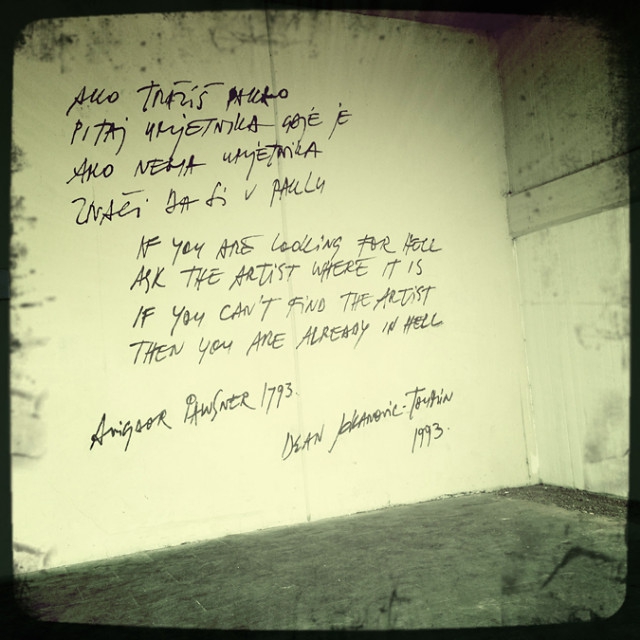 AKO TRAŽIŠ PAKAO
PITAJ UMJETNIKA GDJE JE
AKO NEMA UMJETNIKA
ZNAČI DA SI U PAKLU
IF YOU ARE LOOKING FOR HELL
ASK THE ARTIST WHERE IT IS
IF YOU CAN'T FIND THE ARTIST
THEN YOU ARE ALREADY IN HELL
AVIGDOR PAWSNER 1793.
DEAN JOKANOVIĆ-TOUMIN
1993.